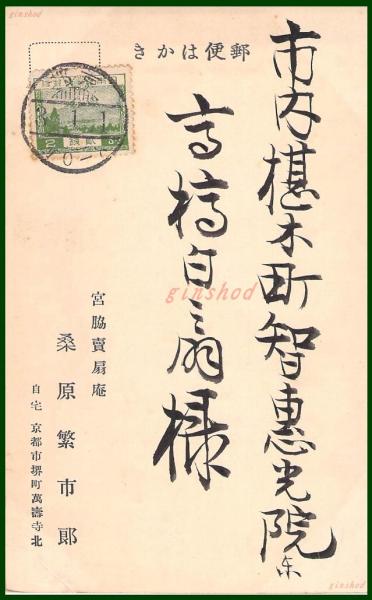 ginshod
郵便はかき
市内椹木町智惠光院東
高橋白扇様
宮脇賣扇庵
桑原繁市郎
自宅 京都市堺町萬壽寺北
ginshod
ginshod